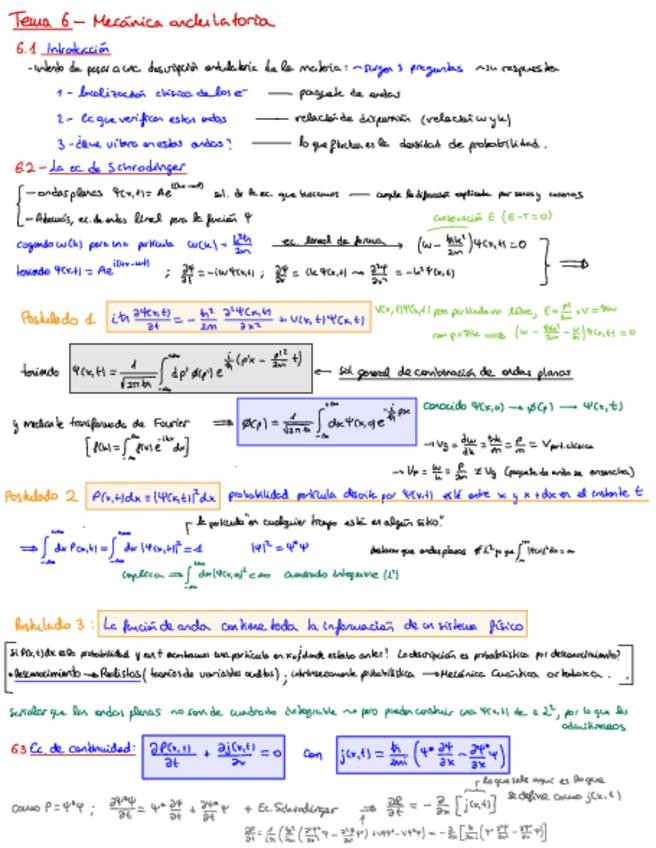 Tema 6 – Mecánica ondulatoria
6.1 Introducción
- intento de pasar a una descripción ondulatoria de la materia: → surgen 3 preguntas → su respuesta
1 - localización clásica de los e⁻ — paquete de ondas
2 - ec que verifican estas ondas — relación de dispersión (relación w y k)
3 - ¿que vibra en estas ondas? — lo que fluctua es la densidad de probabilidad.
6.2 - La ec. de Schrodinger
- ondas planas Ψ(x,t) = Ae^{i(kx-wt)} sol. de la ec. que buscamos — cumple la difracción explicada por senos y cosenos
- Además, ec. de ondas lineal para la función Ψ
conservación E (E-T=0)
cogiendo w(k) para una partícula w(k) = k²ħ/2m ec. lineal de forma → (w - ħk²/2m)Ψ(x,t) = 0
tomando Ψ(x,t) = Ae^{i(kx-wt)} ; ∂Ψ/∂t = -iwΨ(x,t) ; ∂Ψ/∂x = ikΨ(x,t) → ∂²Ψ/∂x² = -k²Ψ(x,t) ⟹
Postulado 1 iħ ∂Ψ(x,t)/∂t = - ħ²/2m ∂²Ψ(x,t)/∂x² + V(x,t)Ψ(x,t)
V(x,t)Ψ(x,t) para partícula no libre, E = p²/2m + V = ħw
con p = ħk ⟹ (w - ħk²/2m - V/ħ)Ψ(x,t) = 0
tomando Ψ(x,t) = 1/√2πħ ∫_{-∞}^{+∞} dp' φ(p') e^{i/ħ (p'x - p'²/2m t)} ← sol general de combinación de ondas planas
y mediante transformada de Fourier ⟹ φ(p) = 1/√2πħ ∫_{-∞}^{+∞} dx Ψ(x,0) e^{-i/ħ px} conocido Ψ(x,0) → φ(p) → Ψ(x,t)
→ Vg = dw/dk = ħk/m = p/m = V part. clásica
→ Vp = w/k = p/2m ≠ Vg (paquete de onda se ensancha)
Postulado 2 P(x,t)dx = |Ψ(x,t)|²dx probabilidad partícula descrita por Ψ(x,t) esté entre x y x+dx en el instante t
la partícula "en cualquier tiempo está en algún sitio."
⟹ ∫_{-∞}^{+∞} dx P(x,t) = ∫_{-∞}^{+∞} dx |Ψ(x,t)|² = 1 |Ψ|² = Ψ*Ψ destacar que ondas planas ∉ L² ya que ∫_{-∞}^{+∞} |Ψ(x,t)|²dx = ∞
implica ⟹ ∫_{-∞}^{+∞} dx |Ψ(x,0)|² < ∞ cuadrado integrable (L²)
Postulado 3: La función de onda contiene toda la información de un sistema físico
Si P(x,t)dx es la probabilidad y en t encontramos una partícula en x ¿donde estaba antes? ¿La descripción es probabilística por desconocimiento?
• Desconocimiento → Realistas (teorías de variables ocultas), intrínsecamente probabilística → Mecánica Cuántica ortodoxa.
Señalar que las ondas planas no son de cuadrado integrable → pero pueden construir una Ψ(x,t) de L², por lo que las admitiremos
6.3 Ec. de continuidad: ∂P(x,t)/∂t + ∂j(x,t)/∂x = 0 con j(x,t) = ħ/2mi (Ψ* ∂Ψ/∂x - ∂Ψ*/∂x Ψ)
lo que sale aquí es lo que se define como j(x,t)
como P = Ψ*Ψ ; ∂Ψ*Ψ/∂t = Ψ* ∂Ψ/∂t + ∂Ψ*/∂t Ψ + Ec. Schrodinger ⟹ ∂P/∂t = - ∂/∂x [j(x,t)]